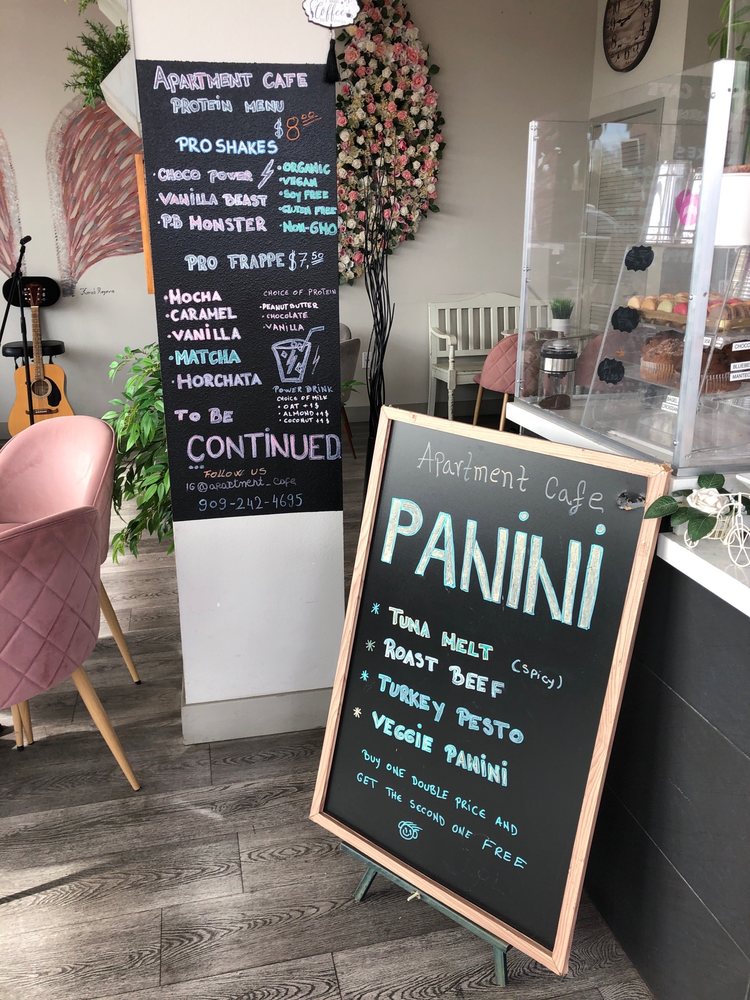 Coffee
APARTMENT CAFE
PROTEIN MENU
$8.00
PRO SHAKES
• CHOCO POWER
• VANILLA BEAST
• P.B MONSTER
• ORGANIC
• VEGAN
• SOY FREE
• GLUTEN FREE
• NON-GMO
PRO FRAPPE $7,50
• MOCHA
• CARAMEL
• VANILLA
• MATCHA
• HORCHATA
CHOICE OF PROTEIN
• PEANUT BUTTER
• CHOCOLATE
• VANILLA
POWER DRINK
CHOICE OF MILK
• OAT +1$
• ALMOND +1$
• COCONUT +1$
TO BE
CONTINUED
...
FOLLOW US
IG @apartment_cafe
909-242-4695
Apartment Cafe
PANINI
* TUNA MELT (SPICY)
* ROAST BEEF
* TURKEY PESTO
* VEGGIE PANINI
BUY ONE DOUBLE PRICE AND
GET THE SECOND ONE FREE